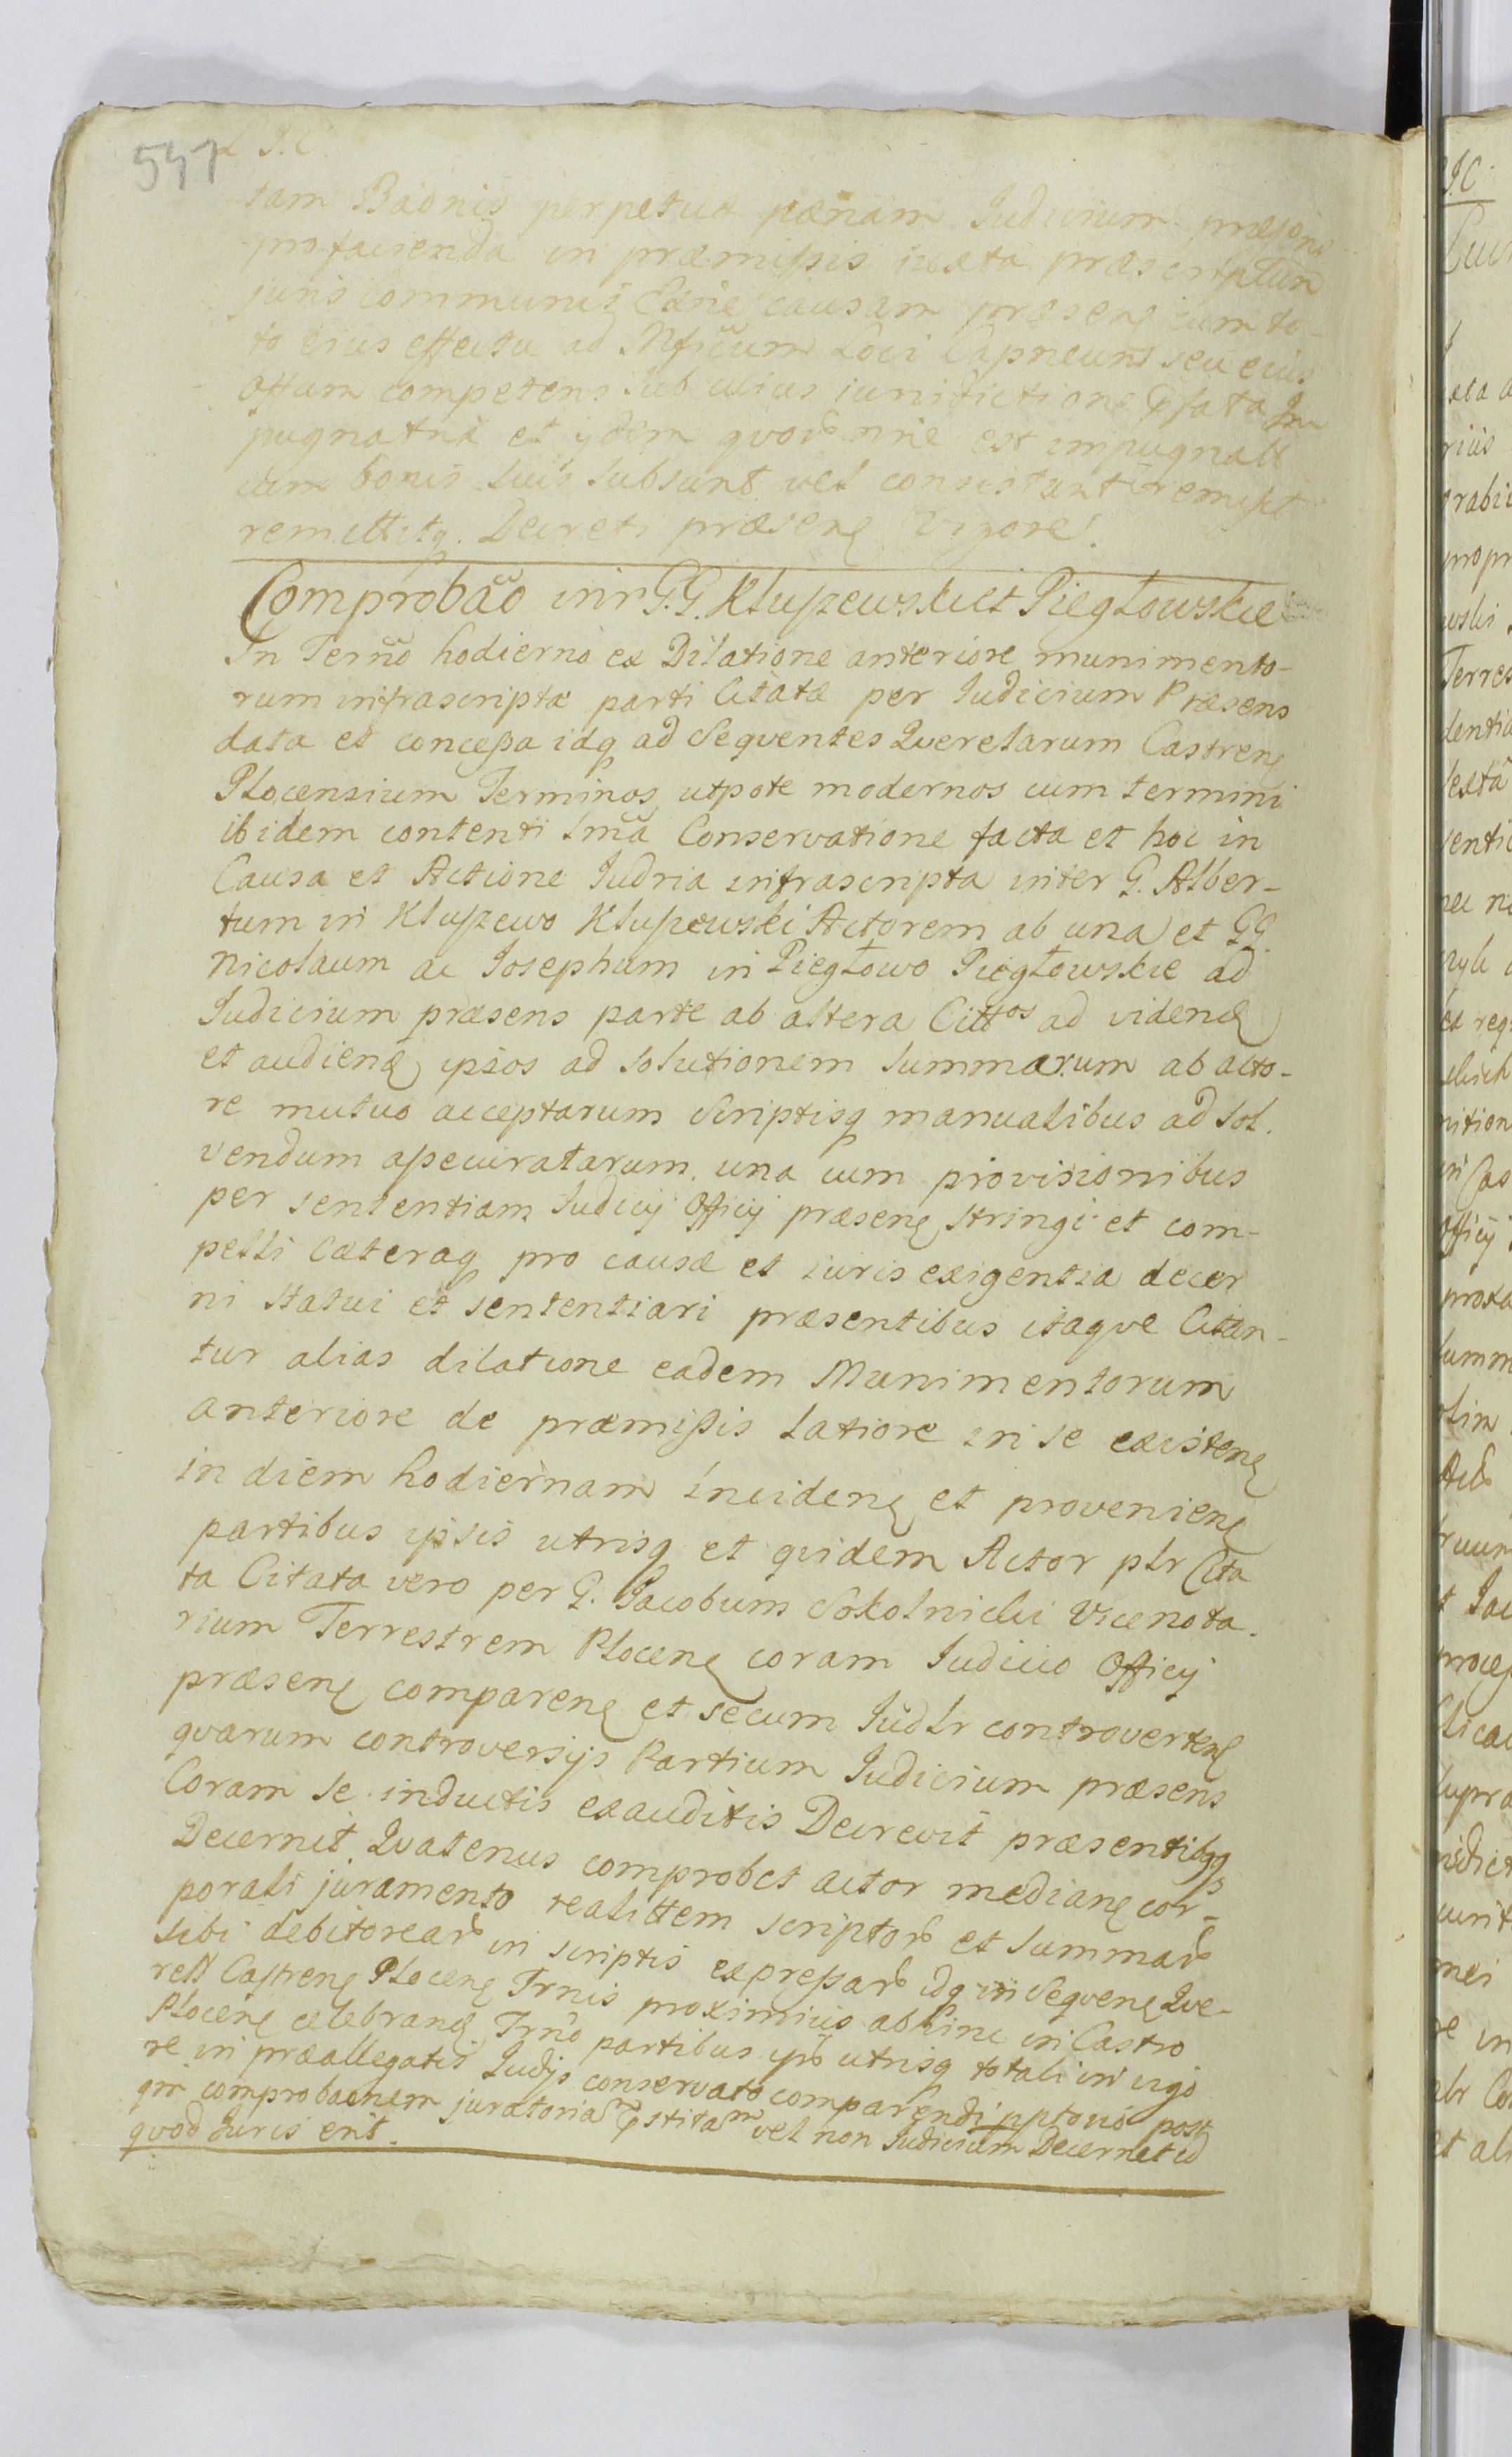 541
I. C.
tam Baōnis perpetuæ pænam Iudicium præsens
pro facienda in præmissis iuxta præscriptum
juris Communis causam præsenę cum to-
to eius effectu ad Loci seu eius
Offum competens sub cuius iurisdictione
et ijdem quorū est
cum bonis suis subsunt vel consistunt remisit
remittitq. Decreti præsenę Vigore.
Comprobāō intr G.G. Klupzewski et Piegłowskie
In Termō hodierno ex Dilatione anteriore munimento-
rum infrascriptæ parti Citatæ per Iudicium Præsens
data et concessa idq ad Seqventes Qverelarum Castrenę
Plocensium Terminos utpote modernos cum termini
ibidem contenti Conservatione facta et hoc in
Causa et Actione Iudria infrascripta inter G. Alber-
tum in Klupzewo Klupzewski Actorem ab una et GG.
Nicolaum ac Iosephum in Piegłowo Piegłowskie ad
Iudicium præsens parte ab altera Cittos ad videnđ
et audienđ ipsos ad solutionem summarum ab acto-
re mutuo acceptarum Scriptisq manualibus ad sol.
vendum assecuratarum una cum provisionibus
per sententiam Iudicij Officij præsenę stringi et com-
pelli Cæteraq pro causæ et iuris exigentia decer
ni statui et sententiari præsentibus itaqve Citan-
tur alias dilatione eadem Munimentorum
anteriore de præmissis latiore in se existenę
in diem hodiernam incidenę et provenienę
partibus ipsis utrisq et qvidem Actor plr Cita
ta Citata vero per G. Jacobum Sokolnicki Vicenota.
rium Terrestrem Plocenę coram Iudicio Officij
præsenę comparenę et secum Iudlr controvertenę
qvarum controversijs Partium Iudicium præsens
Coram se inductis exauditis Decrevit præsentibqs
Decernit Qvatenus comprobet actor medianę cor-
porali juramento realittem scriptorū et summarū
sibi debitorearū in scriptis expressarū idq in Seqvenę Qve-
rell Castrenę Plocenę Trnis proximiũs abhinc in Castro
Plocenę celebrandę Trnō partibus ipīs utrisq totali in vigo
re in præallegatis Iudijs conservato comparendi post
qm comprobaōnem juratoriam vel non Iudicium Decernet id
qvod Iuris erit.